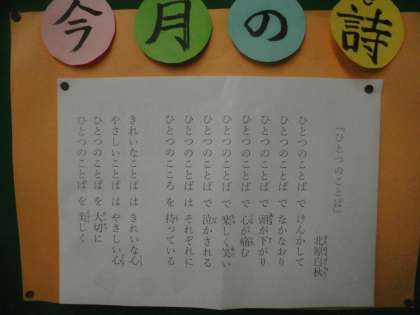 今月の詩
『ひとつのことば』
北原白秋
ひとつのことば で けんかして
ひとつのことば で なかなおり
ひとつのことば で 頭が下がり
ひとつのことば で 心が痛む
ひとつのことば で 楽しく笑い
ひとつのことば で 泣かされる
ひとつのことば は それぞれに
ひとつのこころ を 持っている
きれいなことば は きれいな心
やさしいことば は やさしい心
ひとつのことば を 大切に
ひとつのことば を 美しく